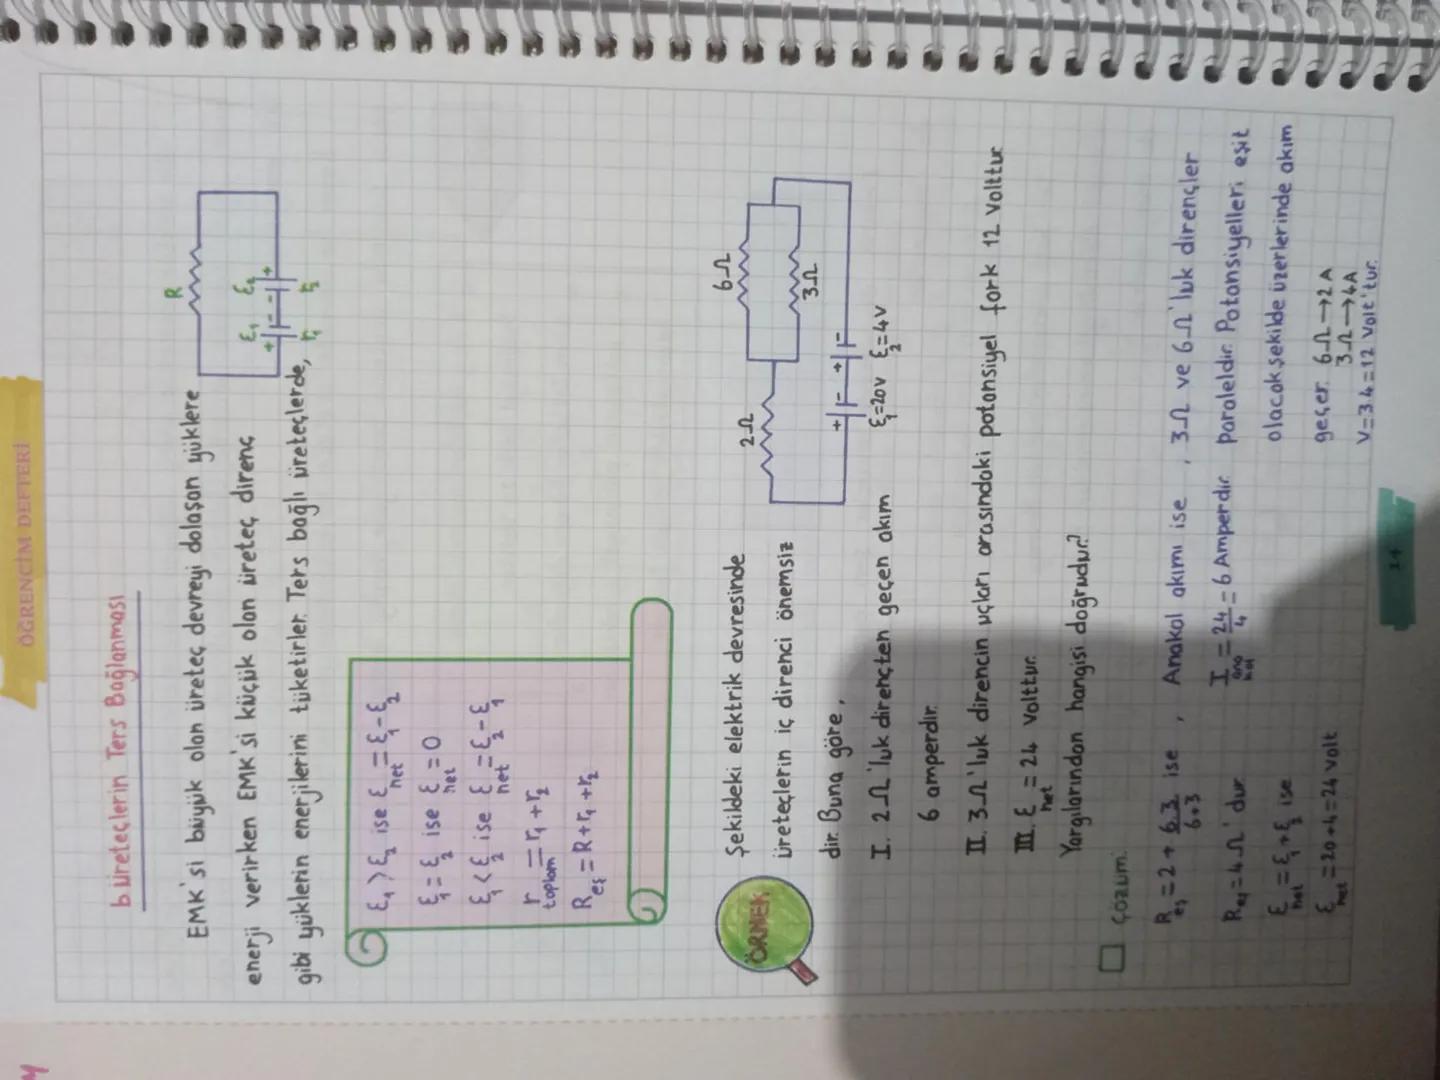 ÖĞRENCİM DEFTERİ
b Üreteçlerin Ters Bağlanması
EMK'si büyük olan üreteç devreyi dolaşan yüklere
enerji verirken EMK'si küçük olan üreteç direnç
gibi yüklerin enerjilerini tüketirler. Ters bağlı üreteçlerde,
R
ε₁ ε₂
+ - - +
r₁ r₂
ε₁ > ε₂ ise ε net = ε₁-ε₂
ε₁ = ε₂ ise ε net = 0
ε₁ < ε₂ ise ε net = ε₂-ε₁
r toplam = r₁+r₂
Reş = R+r₁+r₂
ÖRNEK
Şekildeki elektrik devresinde
üreteçlerin iç direnci önemsiz
dir. Buna göre,
2Ω
6Ω
3Ω
+ - + -
ε₁=20v ε₂=4v
I. 2Ω'luk dirençten geçen akım
6 amperdir.
II. 3Ω'luk direncin uçları arasındaki potansiyel fark 12 Volttur
III. ε net = 24 Volttur.
Yargılarından hangisi doğrudur?
Çözüm:
Reş = 2 + 6.3/6+3 ise ,
Reş = 4Ω'dur
ε net = ε₁+ε₂ ise
ε net = 20+4=24 volt
Anakol akımı ise ,
I ana kol = 24/4 = 6 Amperdir.
3Ω ve 6Ω'luk dirençler
paraleldir. Potansiyelleri eşit
olacak şekilde üzerlerinde akım
geçer. 6Ω→2A
3Ω→4A
V=3.4=12 Volt'tur.
24